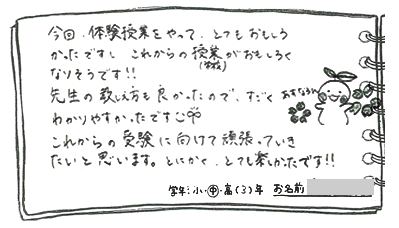 今回、体験授業をやって、とてもおもしろ
かったですし これからの授業がおもしろく
なりそうです!!
先生の教え方も良かったので、すごく
わかりやすかったです
これからの受験に向けて頑張っていき
たいと思います。とにかく、とても楽しかったです!!
学年:小・中・高(3)年 お名前